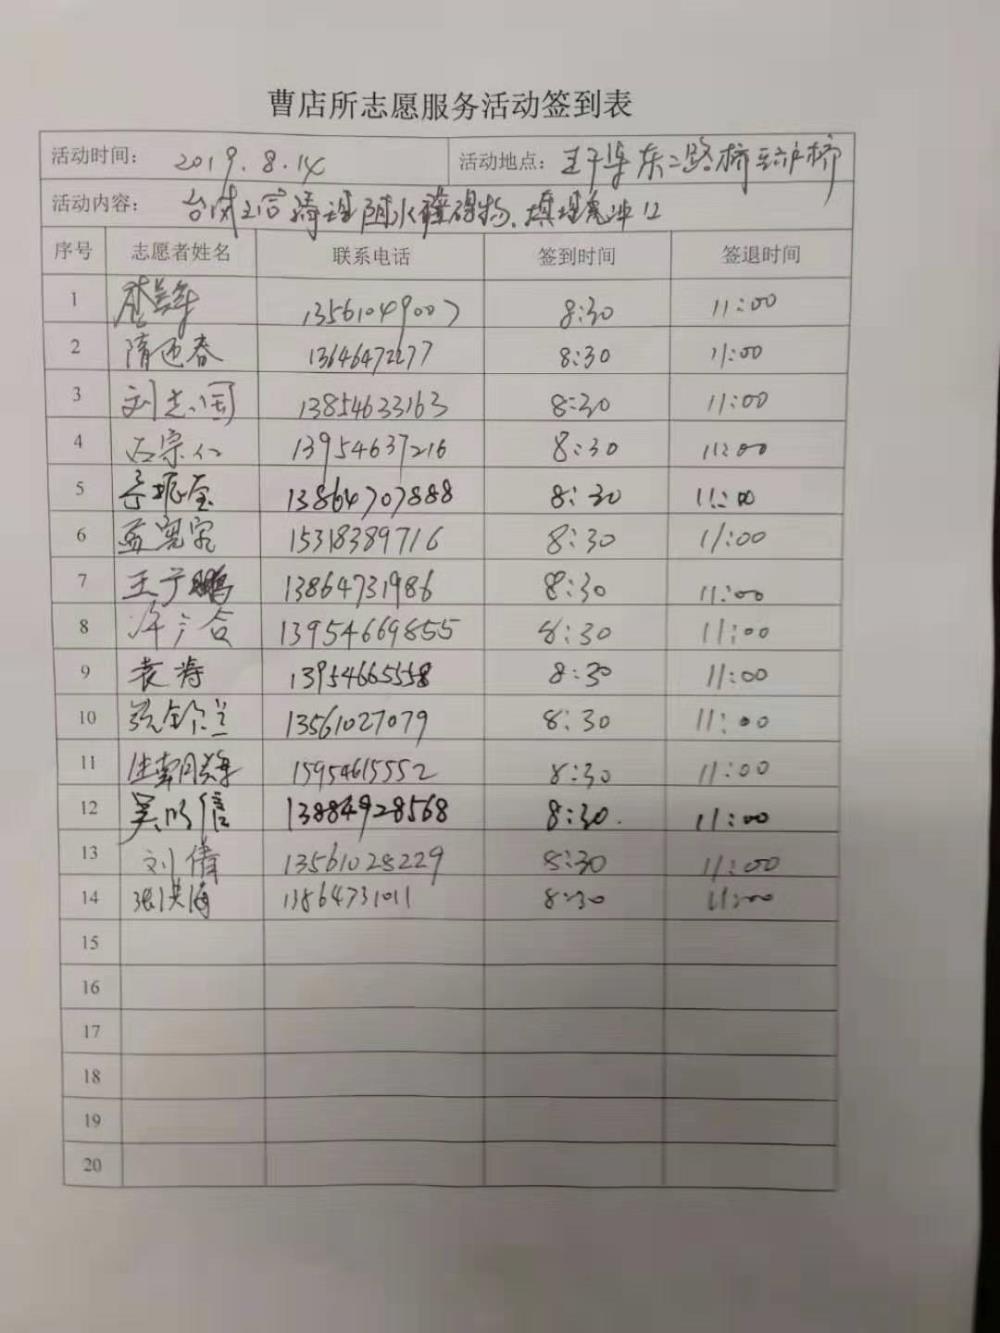 曹店所志愿服务活动签到表
活动时间: 2019.8.14 活动地点: 王干渠东二路桥
活动内容: 台风过后清理阻水障碍物、填埋
序号 志愿者姓名 联系电话 签到时间 签退时间
1 13561049007 8:30 11:00
2 隋迎春 13646472277 8:30 11:00
3 刘志国 13854633163 8:30 11:00
4 石宗仁 13954637216 8:30 11:00
5 13864707888 8:30 11:00
6 15318389716 8:30 11:00
7 王宁鹏 13864731986 8:30 11:00
8 13954669855 8:30 11:00
9 袁海 13954665558 8:30 11:00
10 13561027079 8:30 11:00
11 15954615552 8:30 11:00
12 吴明信 13884928568 8:30. 11:00
13 刘倩 13561028229 8:30 11:00
14 张洪海 13864731011 8:30 11:00
15
16
17
18
19
20